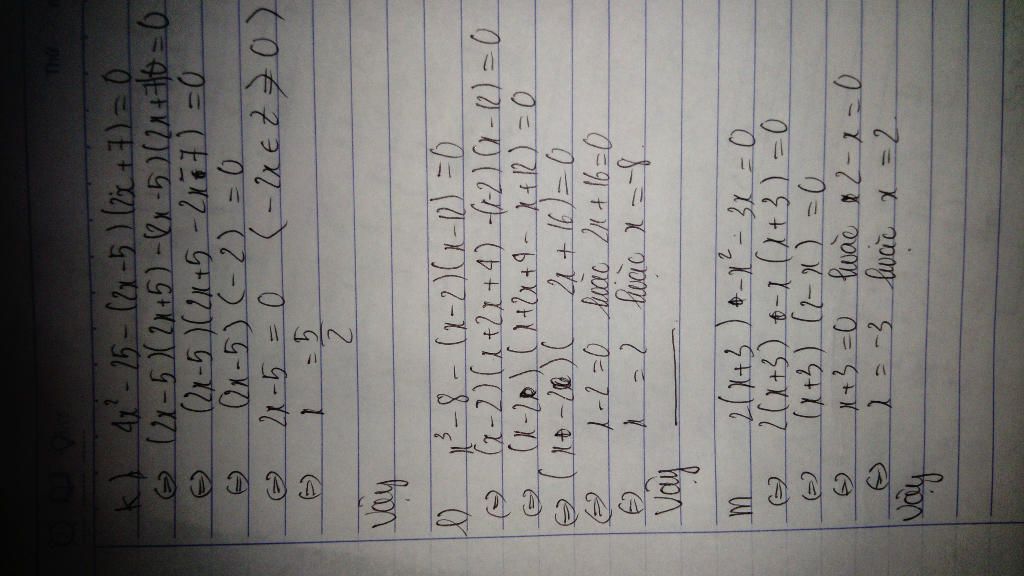 k) 4x² - 25 - (2x - 5)(2x + 7) = 0
(=) (2x - 5)(2x + 5) - (2x - 5)(2x + 7) = 0
(=) (2x - 5)(2x + 5 - 2x - 7) = 0
(=) (2x - 5)(-2) = 0
(=) 2x - 5 = 0 (-2x ∈ Z ≠ 0)
(=) x = 5/2
Vậy
l) x³ - 8 - (x - 2)(x - 12) = 0
(=) (x - 2)(x + 2x + 4) - (x - 2)(x - 12) = 0
(=) (x - 2)(x + 2x + 4 - x + 12) = 0
(=) (x - 2)(2x + 16) = 0
(=) x - 2 = 0 hoặc 2x + 16 = 0
(=) x = 2 hoặc x = -8
Vậy
m 2(x + 3) - x² - 3x = 0
(=) 2(x + 3) - x(x + 3) = 0
(=) (x + 3)(2 - x) = 0
(=) x + 3 = 0 hoặc 2 - x = 0
(=) x = -3 hoặc x = 2
Vậy